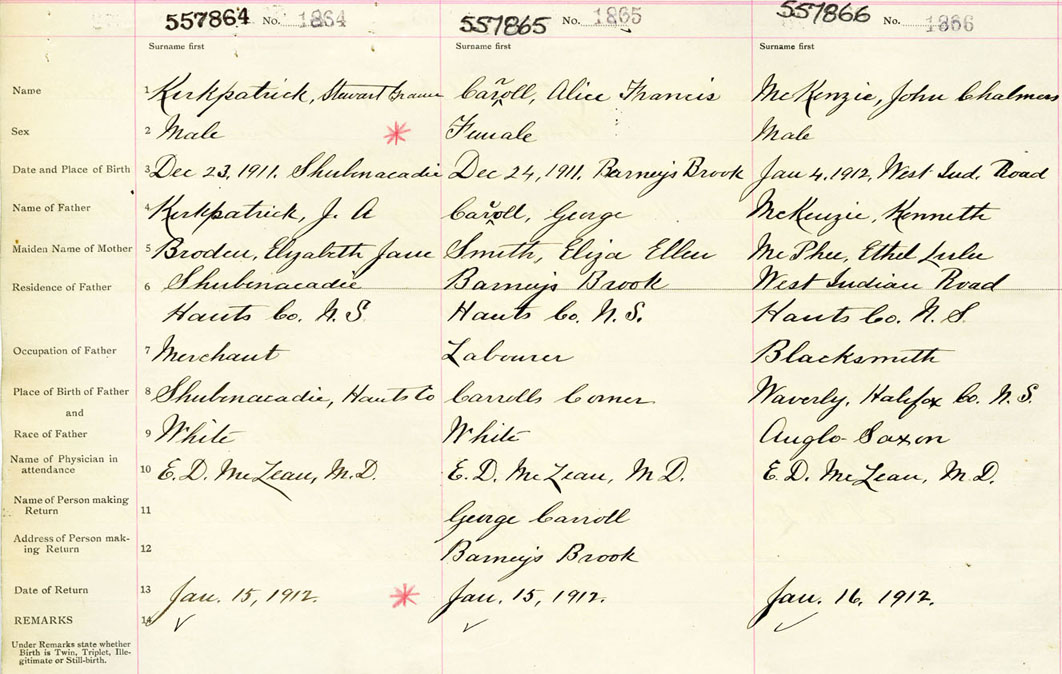 557864 No. 1864 557865 No. 1865 557866 No. 1866
Surname first Surname first Surname first
Name 1 Kirkpatrick, Stewart Caroll, Alice Francis McKenzie, John Chalmers
r
Sex 2 Male Female Male
Date and Place of Birth 3 Dec 23, 1911. Shubenacadie Dec 24, 1911. Barneys Brook Jan 4, 1912, West Ind. Road
Name of Father 4 Kirkpatrick, J. A Caroll, George McKenzie, Kenneth
r
Maiden Name of Mother 5 Broden, Elizabeth Jane Smith, Eliza Ellen McPhee, Ethel Lulu
Residence of Father 6 Shubenacadie Barneys Brook West Indian Road
Hants Co. N. S. Hants Co. N. S. Hants Co. N. S.
Occupation of Father 7 Merchant Labourer Blacksmith
Place of Birth of Father 8 Shubenacadie, Hants Co Carrolls Corner Waverly, Halifax Co. N. S.
and
Race of Father 9 White White Anglo-Saxon
Name of Physician in
attendance 10 E. D. McLean, M. D. E. D. McLean, M D. E. D. McLean, M. D.
Name of Person making
Return 11 George Carroll
Address of Person mak-
ing Return 12 Barneys Brook
Date of Return 13 Jan. 15, 1912. Jan. 15, 1912. Jan. 16, 1912.
REMARKS 14
Under Remarks state whether
Birth is Twin, Triplet, Ille-
gitimate or Still-birth.